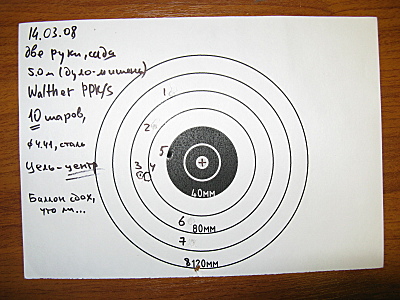 14.03.08
две руки, сидя
5.0 м (дуло-мишень)
Walther PPK/S
10 шаров,
ø 4.41, сталь
Цель-центр
Баллон сдох,
что ли...
1
2
5
3 4
40мм
6
80мм
7
8
120мм